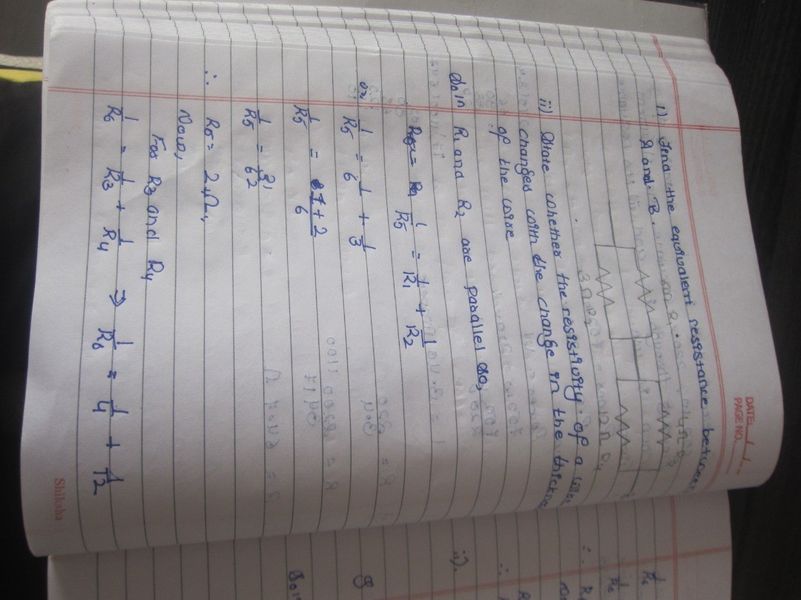 DATE:
PAGE NO.:
i) Find the equivalent resistance between
A and B.
ii) State whether the resistivity of a wire
changed with the change in the thickne
of the wire
Soln R1 and R2 are parallel so,
1/R5 = 1/R1 + 1/R2
or, 1/R5 = 1/6 + 1/3
1/R5 = 1+2/6
1/R5 = 3/6 2
∴ R5 = 2Ω,
Now,
For R3 and R4
1/R6 = 1/R3 + 1/R4 ⇒ 1/R6 = 1/4 + 1/12
Shiksha
ii).